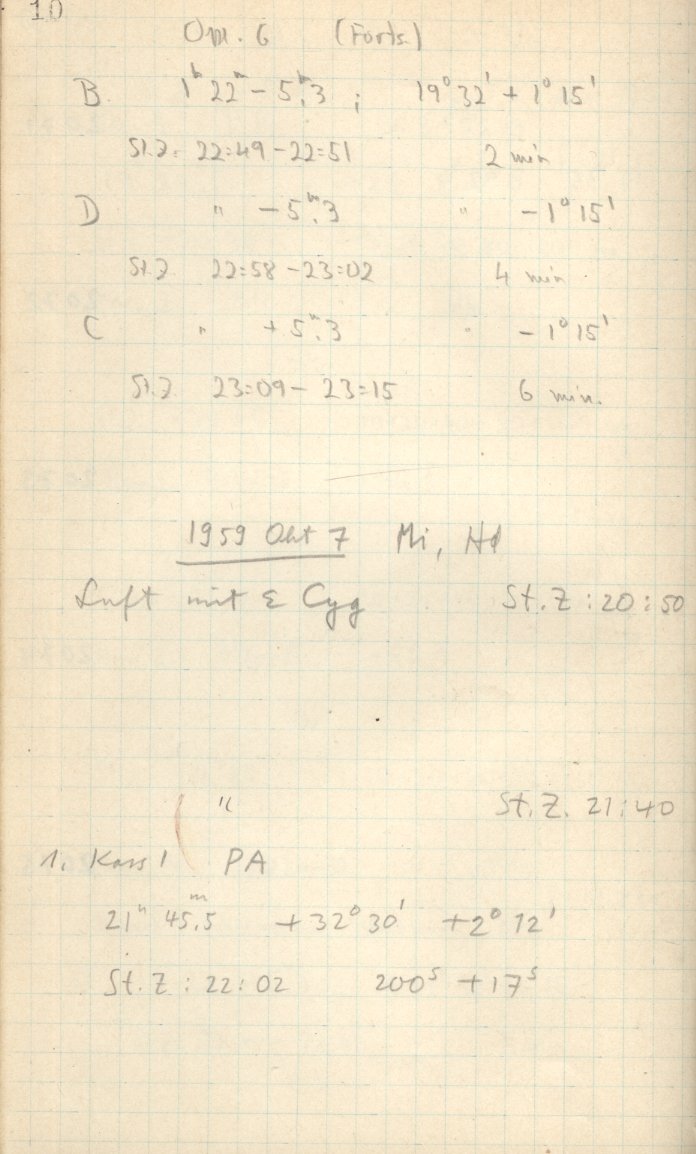 10
Om. 6 (Forts.)
B 1ʰ 22ᵐ - 5ᵐ.3 ; 19° 32' + 1° 15'
St.Z. 22:49 - 22:51 2 min
D " - 5ᵐ.3 " - 1° 15'
St.Z. 22:58 - 23:02 4 min
C " + 5ᵐ.3 " - 1° 15'
St.Z 23:09 - 23:15 6 min.
1959 Okt 7 Mi, Hd
Luft mit ε Cyg St.Z : 20:50
" St.Z. 21:40
1. Kass 1 PA
21ʰ 45ᵐ.5 +32° 30' +2° 12'
St.Z : 22:02 200ˢ +17ˢ